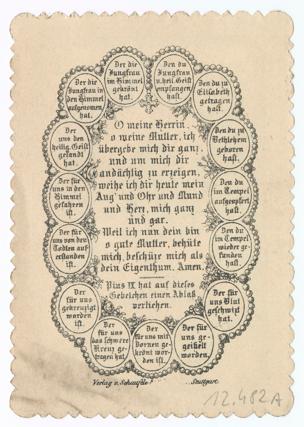 Der die
Jungfrau
im Himmel
gekrönt
hat.
Den du
o Jungfrau
v. heil. Geist
empfangen
hast.
Den du zu
Elisabeth
getragen
hast.
Den du zu
Bethlehem
geboren
hast.
Den du
im Tempel
aufgeopfert
hast.
Den du
im Tempel
wieder ge-
funden
hast.
Der für
uns Blut
geschwizt
hat.
Der für
uns ge-
geißelt
worden.
Der für
uns mit
Dornen ge-
krönt wor-
den ist.
Der
für uns
das schwere
Kreuz ge-
tragen hat.
Der
für uns
gekreuzigt
worden
ist.
Der für
uns von den
Todten auf-
erstanden
ist.
Der für
uns in den
Himmel
gefahren
ist.
Der
uns den
heilig. Geist
gesandt
hat.
Der die
Jungfrau
in den Himmel
aufgenomen
hat.
O meine Herrin
o meine Mutter, ich
übergebe mich dir ganz,
und um mich dir
andächtig zu erzeigen,
weihe ich dir heute mein
Aug' und Ohr und Mund
und Herz, mich ganz
und gar.
Weil ich nun dein bin
o gute Mutter, behüte
mich, beschüze mich als
dein Eigenthum. Amen.
Pius IX hat auf dieses
Gebetchen einen Ablaß
verliehen.
Verlag v. Stuttgart
12.482A